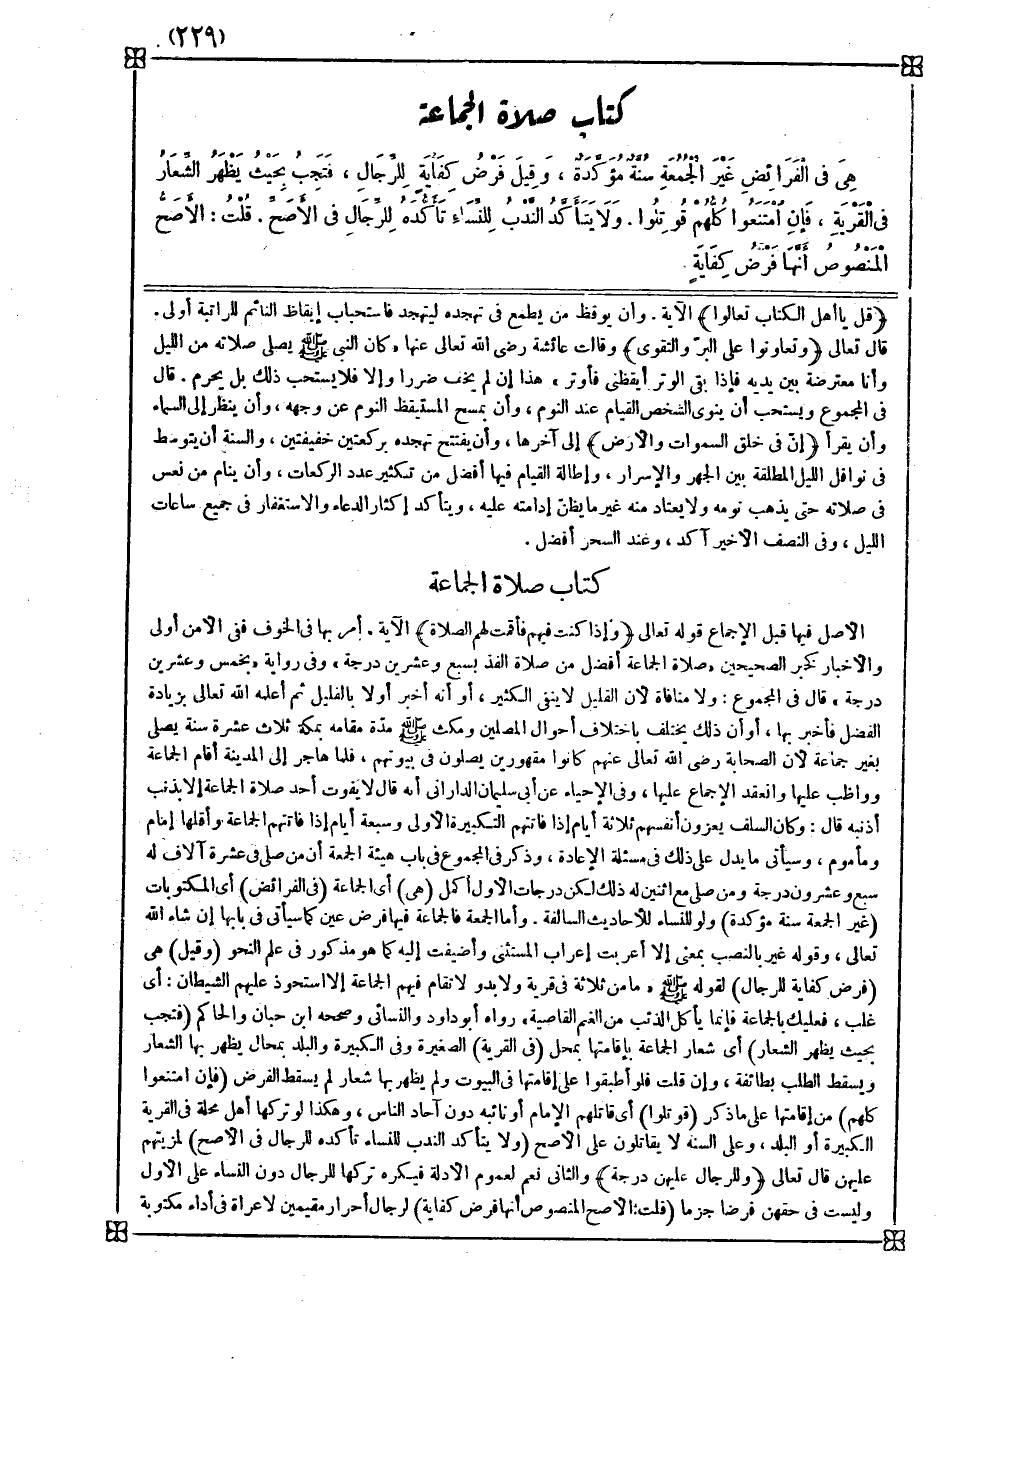 (٢٢٩)
كتاب صلاة الجماعة
هِىَ فى الْفَرَائِضِ غَيْرَ الْجُمُعَةِ سُنَّةٌ مُؤَكَّدَةٌ ، وَقِيلَ فَرْضُ كِفَايَةٍ لِلرِّجَالِ ، فَتَجِبُ بِحَيْثُ يَظْهَرُ الشِّعَارُ
فى الْقَرْيَةِ ، فَإِنِ امْتَنَعُوا كُلُّهُمْ قُوتِلُوا . وَلَا يَتَأَكَّدُ النَّدْبُ لِلنِّسَاءِ تَأَكُّدَهُ لِلرِّجَالِ فى الْأَصَحِّ . قُلْتُ : الْأَصَحُّ
الْمَنْصُوصُ أَنَّهَا فَرْضُ كِفَايَةٍ .
﴿قل يا أهل الكتاب تعالوا﴾ الآية . وأن يوقظ من يطمع فى تهجده ليتهجد فاستحباب إيقاظ النائم للراتبة أولى .
قال تعالى ﴿وتعاونوا على البرّ والتقوى﴾ وقالت عائشة رضى الله تعالى عنها «كان النبى ﷺ يصلى صلاته من الليل
وأنا معترضة بين يديه فإذا بقى الوتر أيقظنى فأوتر» هذا إن لم يخف ضررا وإلا فلا يستحب ذلك بل يحرم . قال
فى المجموع ويستحب أن ينوى الشخص القيام عند النوم ، وأن يمسح المستيقظ النوم عن وجهه ، وأن ينظر إلى السماء
وأن يقرأ ﴿إنّ فى خلق السموات والأرض﴾ إلى آخرها ، وأن يفتتح تهجده بركعتين خفيفتين ، والسنة أن يتوسط
فى نوافل الليل المطلقة بين الجهر والإسرار ، وإطالة القيام فيها أفضل من تكثير عدد الركعات ، وأن ينام من نعس
فى صلاته حتى يذهب نومه ولا يعتاد منه غير ما يظنّ إدامته عليه ، ويتأكد إكثار الدعاء والاستغفار فى جميع ساعات
الليل ، وفى النصف الأخير آكد ، وعند السحر أفضل .
كتاب صلاة الجماعة
الأصل فيها قبل الإجماع قوله تعالى ﴿وإذا كنت فيهم فأقمت لهم الصلاة﴾ الآية . أمر بها فى الخوف ففى الأمن أولى
والأخبار كخبر الصحيحين «صلاة الجماعة أفضل من صلاة الفذ بسبع وعشرين درجة» وفى رواية «بخمس وعشرين
درجة» قال فى المجموع : ولا منافاة لأن القليل لاينفى الكثير ، أو أنه أخبر أولا بالقليل ثم أعلمه الله تعالى بزيادة
الفضل فأخبر بها ، أوأن ذلك يختلف باختلاف أحوال المصلين ومكث ﷺ مدّة مقامه بمكة ثلاث عشرة سنة يصلى
بغير جماعة لأن الصحابة رضى الله تعالى عنهم كانوا مقهورين يصلون فى بيوتهم ، فلما هاجر إلى المدينة أقام الجماعة
وواظب عليها وانعقد الإجماع عليها ، وفى الإحياء عن أبى سليمان الدارانى أنه قال لا يفوت أحد صلاة الجماعة إلا بذنب
أذنبه قال : وكان السلف يعزون أنفسهم ثلاثة أيام إذا فاتتهم التكبيرة الأولى وسبعة أيام إذا فاتتهم الجماعة وأقلها إمام
ومأموم ، وسيأتى مايدل على ذلك فى مسئلة الإعادة ، وذكر فى المجموع فى باب هيئة الجمعة أن من صلى فى عشرة آلاف له
سبع وعشرون درجة ومن صلى مع اثنين له ذلك لكن درجات الأول أكمل (هى) أى الجماعة (فى الفرائض) أى المكتوبات
(غير الجمعة سنة مؤكدة) ولو للنساء للأحاديث السالفة . وأما الجمعة فالجماعة فيها فرض عين كما سيأتى فى بابها إن شاء الله
تعالى ، وقوله غير بالنصب بمعنى إلا أعربت إعراب المستثنى وأضيفت إليه كما هو مذكور فى علم النحو (وقيل) هى
(فرض كفاية للرجال) لقوله ﷺ «مامن ثلاثة فى قرية ولا بدو لاتقام فيهم الجماعة إلا استحوذ عليهم الشيطان : أى
غلب ، فعليك بالجماعة فإنما يأكل الذئب من الغنم القاصية» رواه أبو داود والنسائى وصححه ابن حبان والحاكم (فتجب
بحيث يظهر الشعار) أى شعار الجماعة بإقامتها بمحل (فى القرية) الصغيرة وفى الكبيرة والبلد بمحال يظهر بها الشعار
ويسقط الطلب بطائفة ، وإن قلت فلو أطبقوا على إقامتها فى البيوت ولم يظهر بها شعار لم يسقط الفرض (فإن امتنعوا
كلهم) من إقامتها على ماذكر (قوتلوا) أى قاتلهم الإمام أو نائبه دون آحاد الناس ، وهكذا لو تركها أهل محلة فى القرية
الكبيرة أو البلد ، وعلى السنة لا يقاتلون على الأصح (ولا يتأكد الندب للنساء تأكده للرجال فى الأصح) لمزيتهم
عليهن قال تعالى ﴿وللرجال عليهن درجة﴾ والثانى نعم لعموم الأدلة فيكره تركها للرجال دون النساء على الأول
وليست فى حقهن فرضا جزما (قلت: الأصح المنصوص أنها فرض كفاية) لرجال أحرار مقيمين لا عراة فى أداء مكتوبة